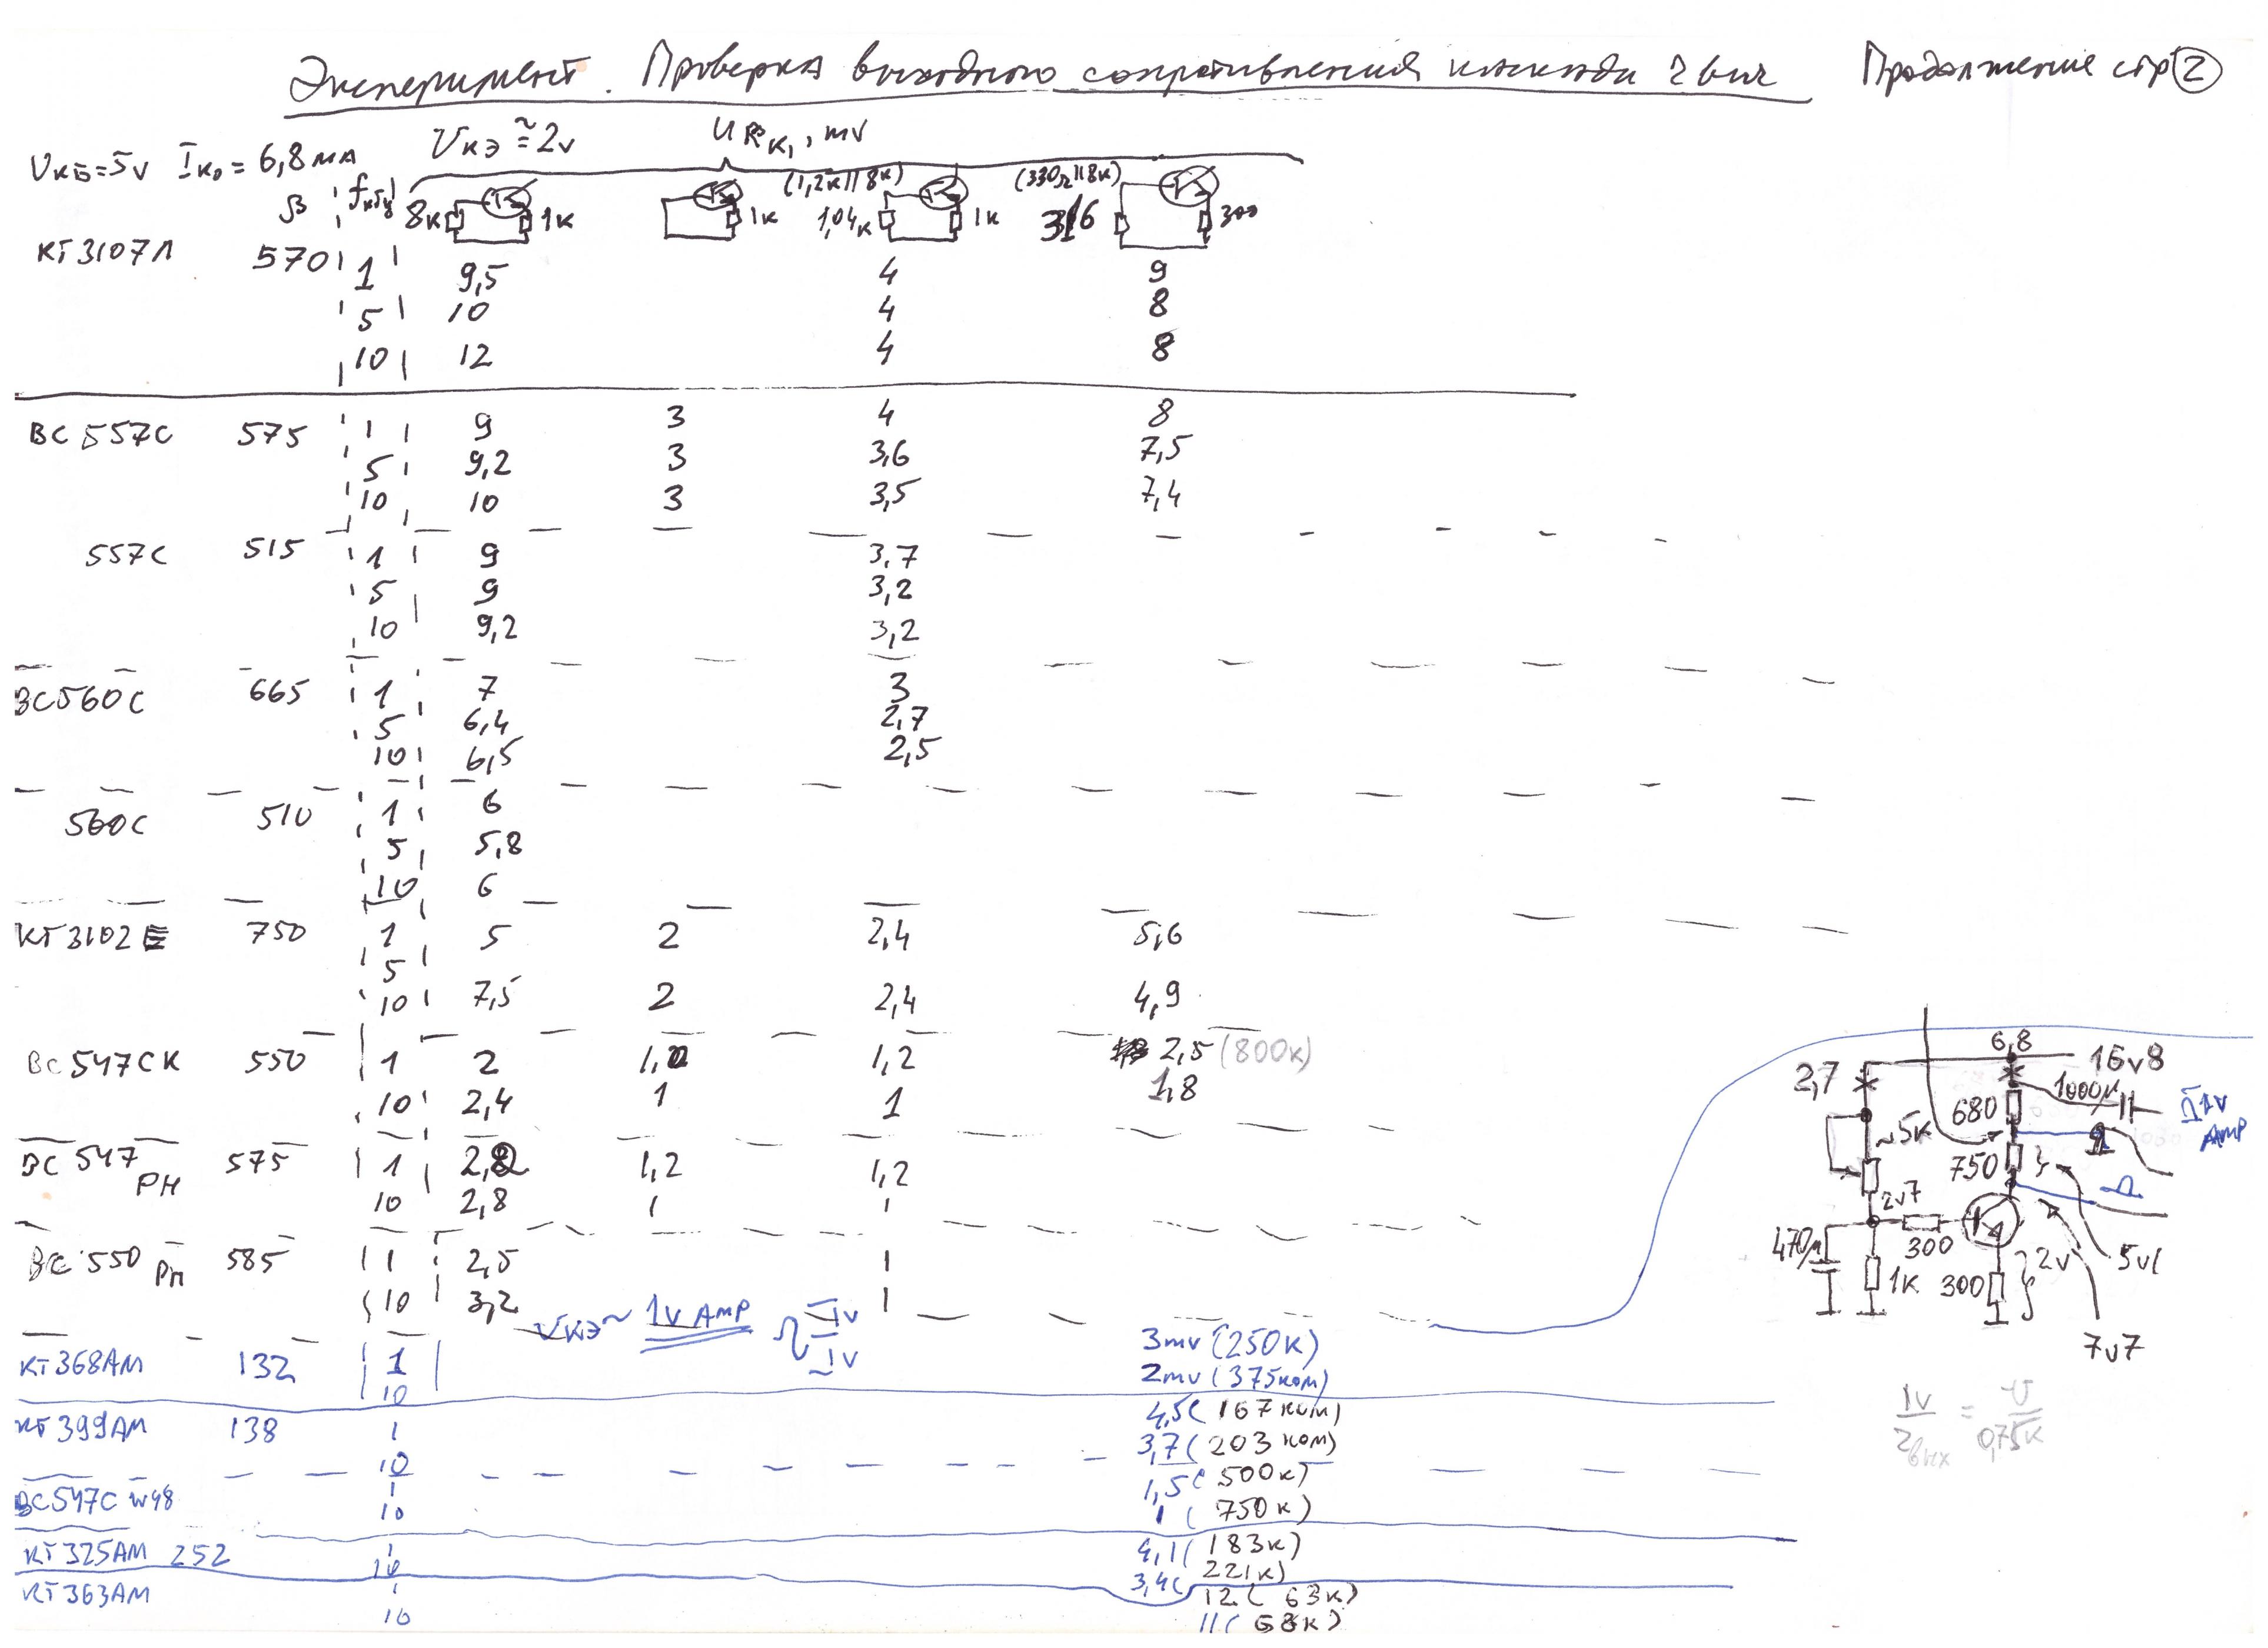 Эксперимент. Проверка выходного сопротивления каскада Zвых Продолжение стр 2
Vкб=5v Iк₀=6,8ма Vкэ≅2v URк₁, mv
β fкГц 8к 1к 1к (1,2к||8к) 1,04к 1к (330Ω||8к) 316 300
КТ3107Л 570 1 9,5 4 9
5 10 4 8
10 12 4 8
BC557C 575 1 9 3 4 8
5 9,2 3 3,6 7,5
10 10 3 3,5 7,4
557C 515 1 9 3,7
5 9 3,2
10 9,2 3,2
BC560C 665 1 7 3
5 6,4 2,7
10 6,5 2,5
560C 510 1 6
5 5,8
10 6
КТ3102Е 750 1 5 2 2,4 5,6
5
10 7,5 2 2,4 4,9
BC547CK 550 1 2 1,2 1,2 2,5 (800к)
10 2,4 1 1 1,8
BC547 PH 575 1 2,2 1,2 1,2
10 2,8 1 1
BC550 585 1 2,5 1
10 3,2 1
Vкэ~ 1v AMP 1v 1v
КТ368АМ 132 1 3mv (250к)
10 2mv (375ком)
КТ399АМ 138 1 4,5 (167ком)
10 3,7 (203ком)
BC547C w48 1 1,5 (500к)
10 1 (750к)
КТ325АМ 252 1 4,1 (183к)
10 3,4 (221к)
КТ363АМ 1 12 (63к)
10 11 (68к)
6,8
2,7 16v8
680 1000μ 1v AMP
~5к
750
2v7
470μ 300 2v 5v1
1к 300
7v7
1v/Zвых = U/0,75к